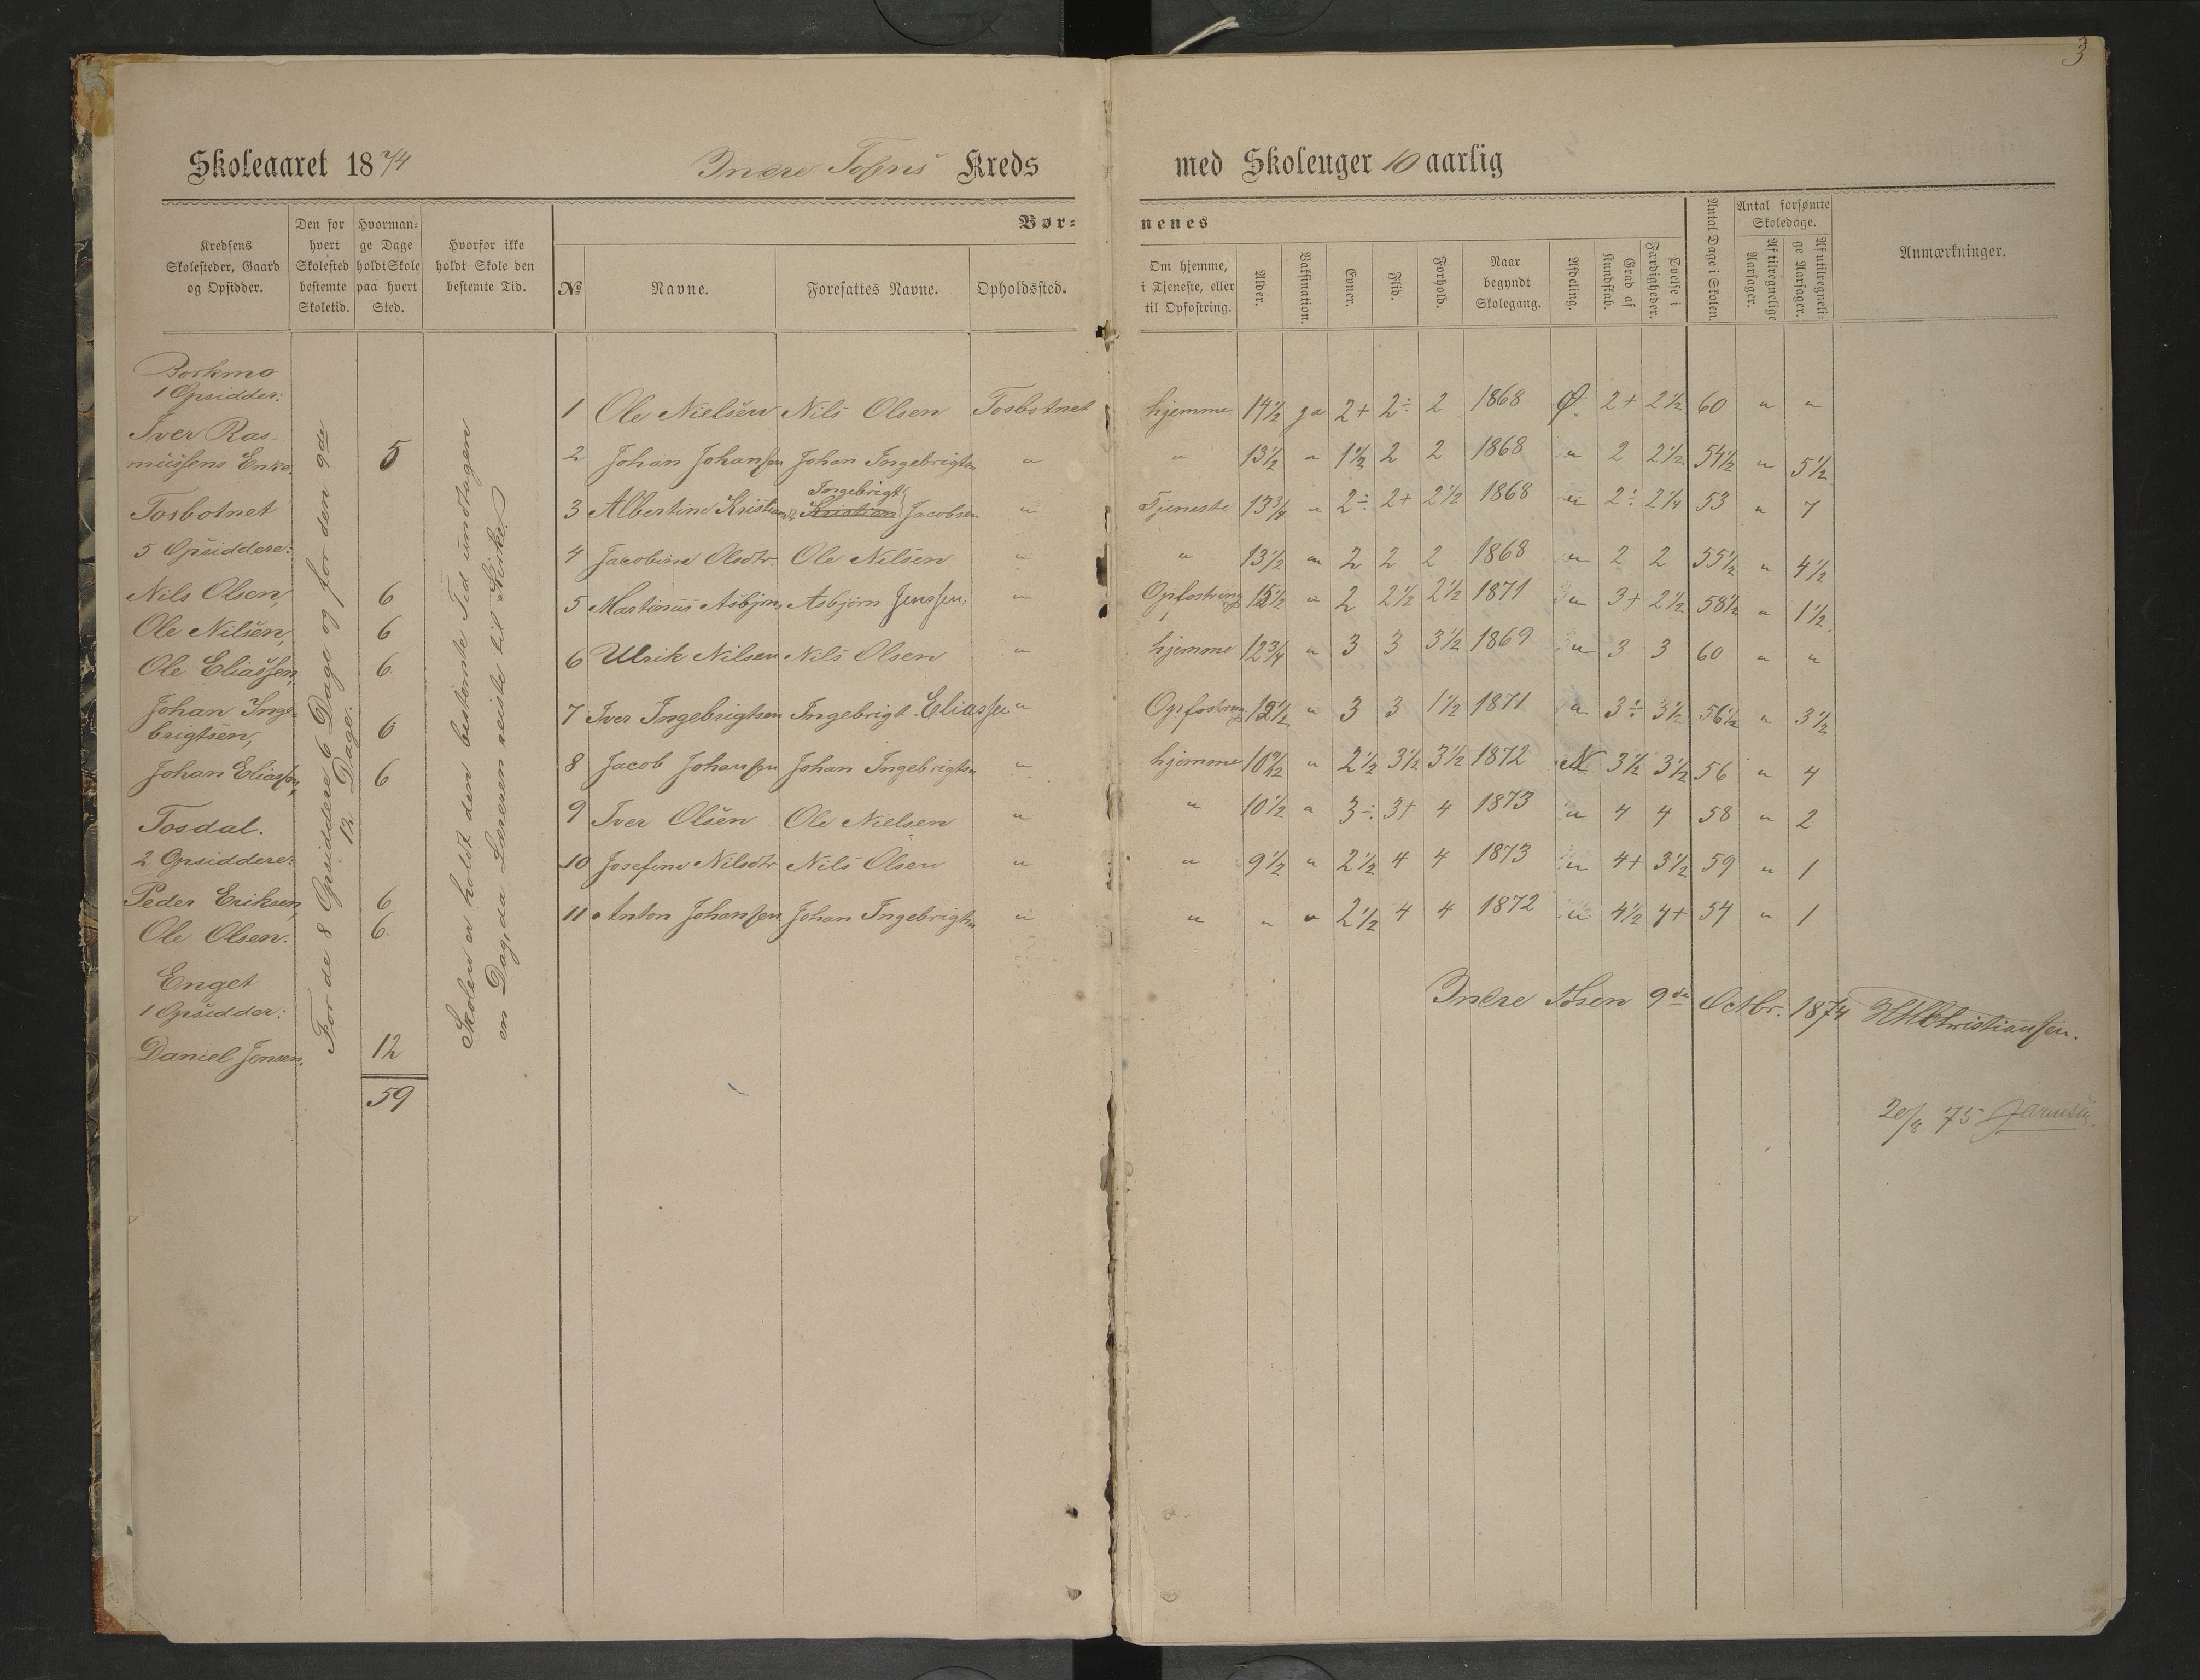 3
Skoleaaret 18 7/4 Indre Tosens Kreds med Skoleuger 10 aarlig
Kredsens Skolesteder, Gaard og Opsidder.
Den for hvert Skolested bestemte Skoletid.
Hvormange Dage holdt Skole paa hvert Sted.
Hvorfor ikke holdt Skole den bestemte Tid.
Bør= nenes
No
Navne.
Foresattes Navne.
Opholdssted.
Om hjemme, i Tjeneste, eller til Opfostring.
Alder.
Vaksination.
Evner.
Flid.
Forhold.
Naar begyndt Skolegang.
Afdeling.
Grad af Kundskab.
Øvelse i Færdigheder.
Antal Dage i Skolen.
Antal forsømte Skoledage.
Af tilregnelige Aarsager.
Af utilregnelige Aarsager.
Anmærkninger.
Borkmo
1 Opsidder:
Iver Ras=
mussens Enke. 5
Tosbotnet
5 Opsiddere:
Nils Olsen, 6
Ole Nilsen, 6
Ole Eliassen, 6
Johan Inge=
brigtsen, 6
Johan Eliassen, 6
Tosdal.
2 Opsiddere:
Peder Eriksen, 6
Ole Olsen. 6
Enget
1 Opsidder:
Daniel Jensen. 12
59
For de 8 Opsiddere 6 Dage og for den 9de
12 Dage.
Skolen er holdt den bestemte Tid undtagen
en Dag, da Læreren reiste til Kirke.
1 Ole Nielsen Nils Olsen Tosbotnet hjemme 14½ ja 2+ 2÷ 2 1868 Ø. 2+ 2½ 60 " "
2 Johan Johansen Johan Ingebrigtsen " " 13½ " 1⅓ 2 2 1868 " 2 2½ 54½ " 5½
3 Albertine Kristiansdtr. Ingebrigt Kristian Jacobsen " Tjeneste 13¾ " 2÷ 2+ 2½ 1868 " 2÷ 2¼ 53 " 7
4 Jacobine Olsdtr. Ole Nilsen " " 13½ " 2 2 2 1868 " 2 2 55½ " 4½
5 Martinus Asbjørns. Asbjørn Jenssen. " Opfostring 15½ " 2 2½ 2½ 1871 " 3+ 2½ 58½ " 1½
6 Ulrik Nilsen Nils Olsen " hjemme 12¾ " 3 3 3½ 1869 " 3 3 60 " "
7 Iver Ingebrigtsen Ingebrigt Eliassen " Opfostring 12½ " 3 3 1½ 1871 " 3÷ 3½ 56½ " 3½
8 Jacob Johansen Johan Ingebrigtsen " hjemme 10½ " 2½ 3½ 3½ 1872 N 3½ 3½ 56 " 4
9 Iver Olsen Ole Nielsen " " 10½ " 3÷ 3+ 4 1873 " 4 4 58 " 2
10 Josefine Nilsdtr Nils Olsen " " 9½ " 2½ 4 4 1873 " 4+ 3½ 59 " 1
11 Anton Johansen Johan Ingebrigtsen " " " " 2½ 4 4 1872 " 4½ 4+ 54 " 1
Indre Tosen 9de Octbr. 1874 HHChristiansen.
20/8 75